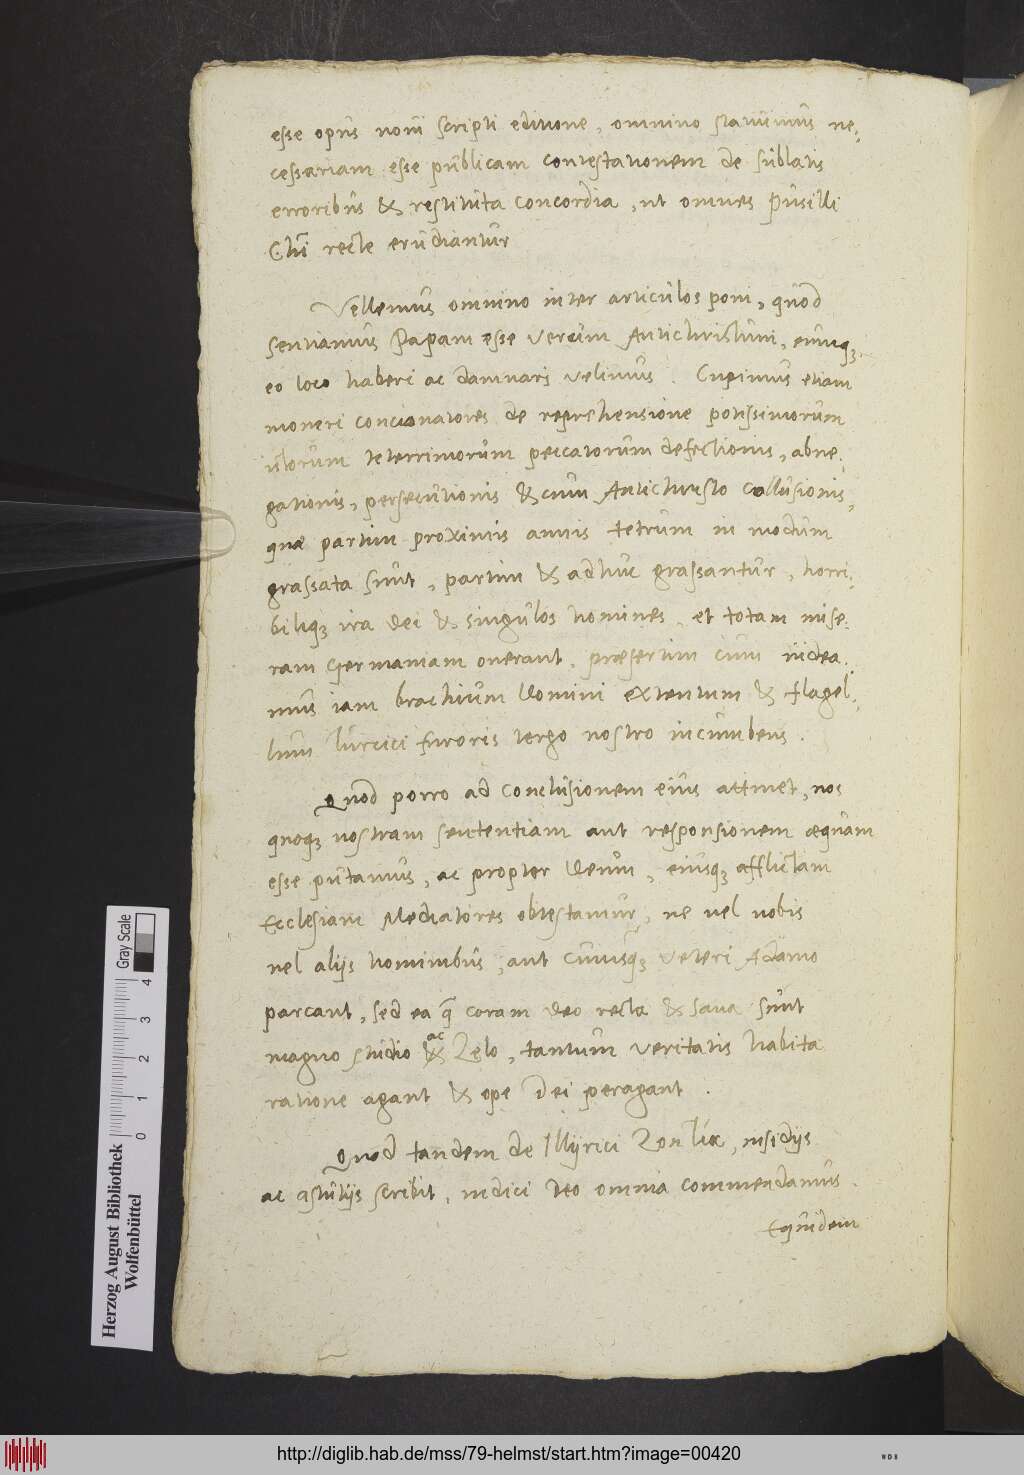 esse opus novi scripti editione, omnino statuimus ne-
cessariam esse publicam contestationem de sublatis
erroribus & restituta concordia, ut omnes pusilli
Chri recte erudiantur
Vellemus omnino inter articulos poni, quod
sentiamus Papam esse verum Antichristum, eumq;
eo loco haberi ac damnari velimus. Cupimus etiam
moneri concionatores de reprehensione potissimorum
istorum teterrimorum peccatorum defectionis, abne-
gationis, persecutionis & cum Antichristo collusionis,
quæ partim proximis annis tetrum in modum
grassata sunt, partim & adhuc grassantur, horri-
biliq; ira dei & singulos homines, et totam mise-
ram Germaniam onerant, præsertim cum videa-
mus iam brachium Domini extentum & flagel-
lum Turcici furoris tergo nostro incumbens.
Quod porro ad conclusionem eius attinet, nos
quoq; nostram sententiam aut responsionem æquam
esse putamus, ac propter Deum, eiusq; afflictam
Ecclesiam Mediatores obtestamur, ne vel nobis
vel alijs hominibus, aut cuiusq; veteri Adamo
parcant, sed ea q coram deo recta & sana sunt
magno studio ac Zelo, tantum veritatis habita
ratione agant & ope Dei peragant.
Quod tandem de Illyrici insidijs
ac astutijs scribit, iudici deo omnia commendamus.
Equidem
Herzog August Bibliothek
Wolfenbüttel
0 1 2 3 4
Gray Scale
http://diglib.hab.de/mss/79-helmst/start.htm?image=00420
WDB